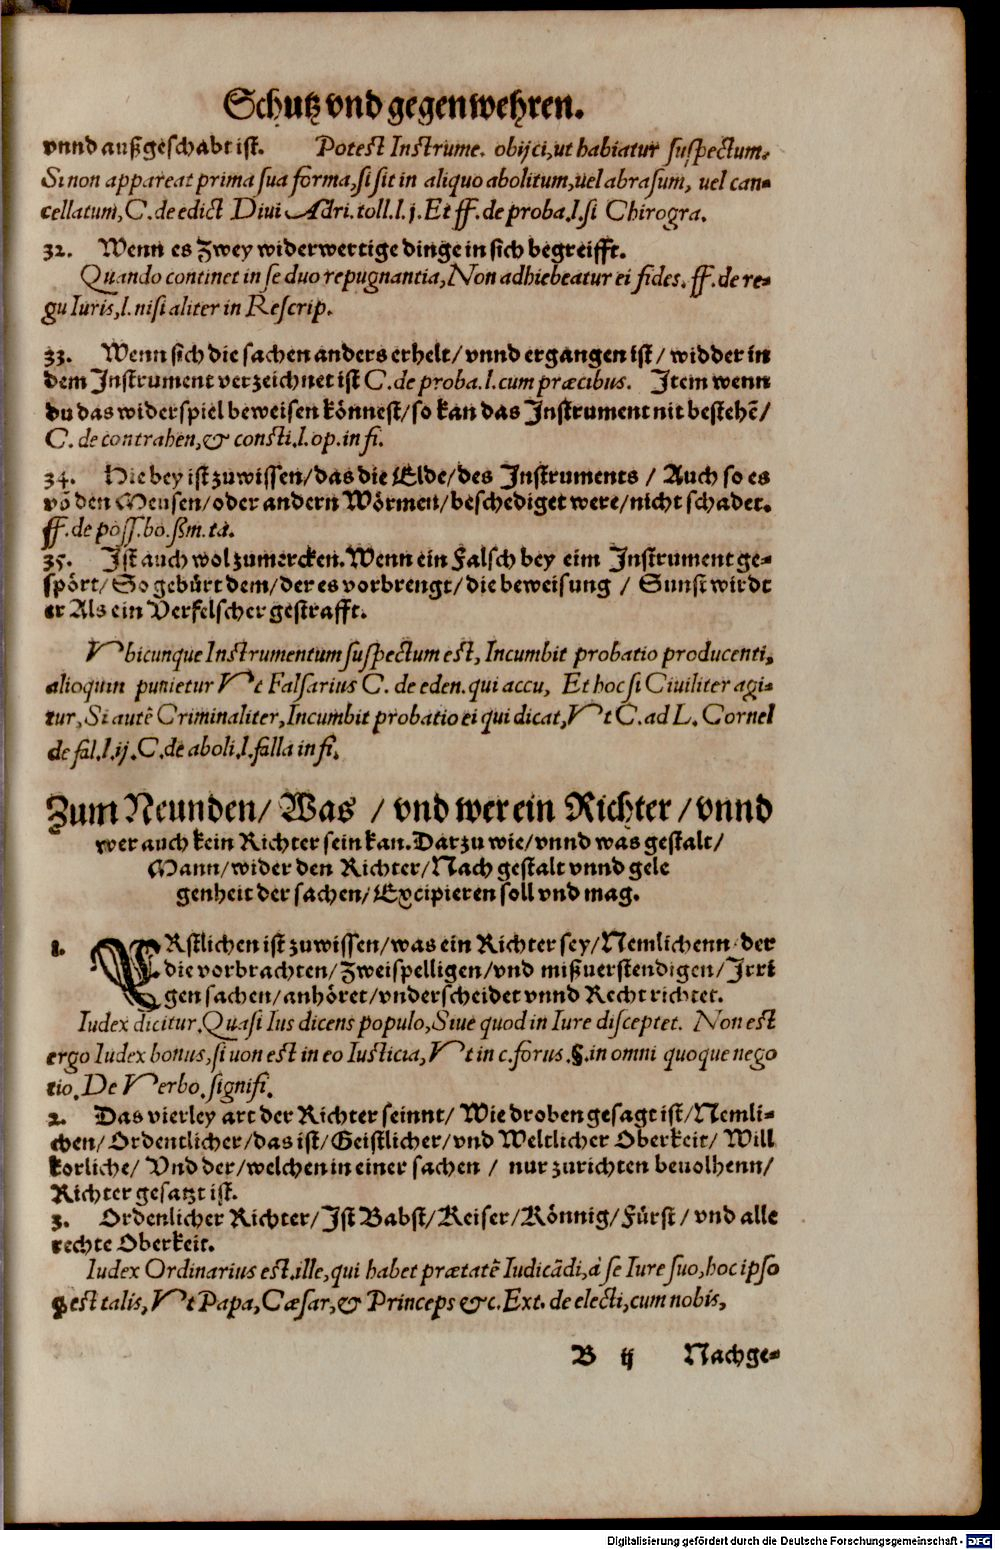 Schutz vnd gegenwehren.
vnnd außgeschabt ist. Potest Instrume. obijci, ut habiatur suspectum.
Si non appareat prima sua forma, si sit in aliquo abolitum, uel abrasum, uel can-
cellatum, C. de edict Diui Adri. toll. l. j. Et ff. de proba. l. si Chirogra.
32. Wenn es Zwey widerwertige dinge in sich begreifft.
Quando continet in se duo repugnantia, Non adhiebeatur ei fides. ff. de re-
gu Iuris, l. nisi aliter in Rescrip.
33. Wenn sich die sachen anders erhelt/ vnnd ergangen ist/ widder in
dem Instrument verzeichnet ist C. de proba. l. cum præcibus. Item wenn
du das widerspiel beweisen könnest/ so kan das Instrument nit bestehē/
C. de contrahen, & consti. l. op. in fi.
34. Hie bey ist zuwissen/ das die Elde/ des Instruments / Auch so es
võ den Meusen/ oder andern Wörmen/ beschediget were/ nicht schadet.
ff. de poss. bo. ßm. ta.
35. Ist auch wol zumercken. Wenn ein Falsch bey eim Instrument ge-
spört/ So gebürt dem/ der es vorbrengt/ die beweisung / Sunst wirdt
er Als ein Verfelscher gestrafft.
Vbicunque Instrumentum suspectum est, Incumbit probatio producenti,
alioquin punietur Vt Falsarius C. de eden. qui accu, Et hoc si Ciuiliter agi-
tur, Si autē Criminaliter, Incumbit probatio ei qui dicat, Vt C. ad L. Cornel
de fal. l. ij. C. de aboli. l. falla in fi.
Zum Neunden/ Was / vnd wer ein Richter / vnnd
wer auch kein Richter sein kan. Darzu wie/ vnnd was gestalt/
Mann/ wider den Richter/ Nach gestalt vnnd gele
genheit der sachen/ Excipieren soll vnd mag.
1. ERstlichen ist zuwissen/ was ein Richter sey/ Nemlichenn der
die vorbrachten/ Zweispelligen/ vnd mißuerstendigen/ Irri
gen sachen/ anhöret/ vnderscheidet vnnd Recht richtet.
Iudex dicitur, Quasi Ius dicens populo, Siue quod in Iure disceptet. Non est
ergo Iudex bonus, si uon est in eo Iusticia, Vt in c. forus. §. in omni quoque nego
tio. De Verbo. signifi.
2. Das vierley art der Richter seinnt/ Wie droben gesagt ist/ Nemli-
chen/ Ordentlicher/ das ist/ Geistlicher/ vnd Weltlicher Oberkeit/ Will
korliche/ Vnd der/ welchen in einer sachen / nur zurichten beuolhenn/
Richter gesatzt ist.
3. Ordenlicher Richter/ Ist Babst/ Keiser/ Könnig/ Fürst/ vnd alle
rechte Oberkeit.
Iudex Ordinarius est. ille, qui habet prætatē Iudicādi, à se Iure suo, hoc ipso
ꝙ est talis, Vt Papa, Cæsar, & Princeps &c. Ext. de electi, cum nobis,
B ij Nachge-
Digitalisierung gefördert durch die Deutsche Forschungsgemeinschaft - DFG